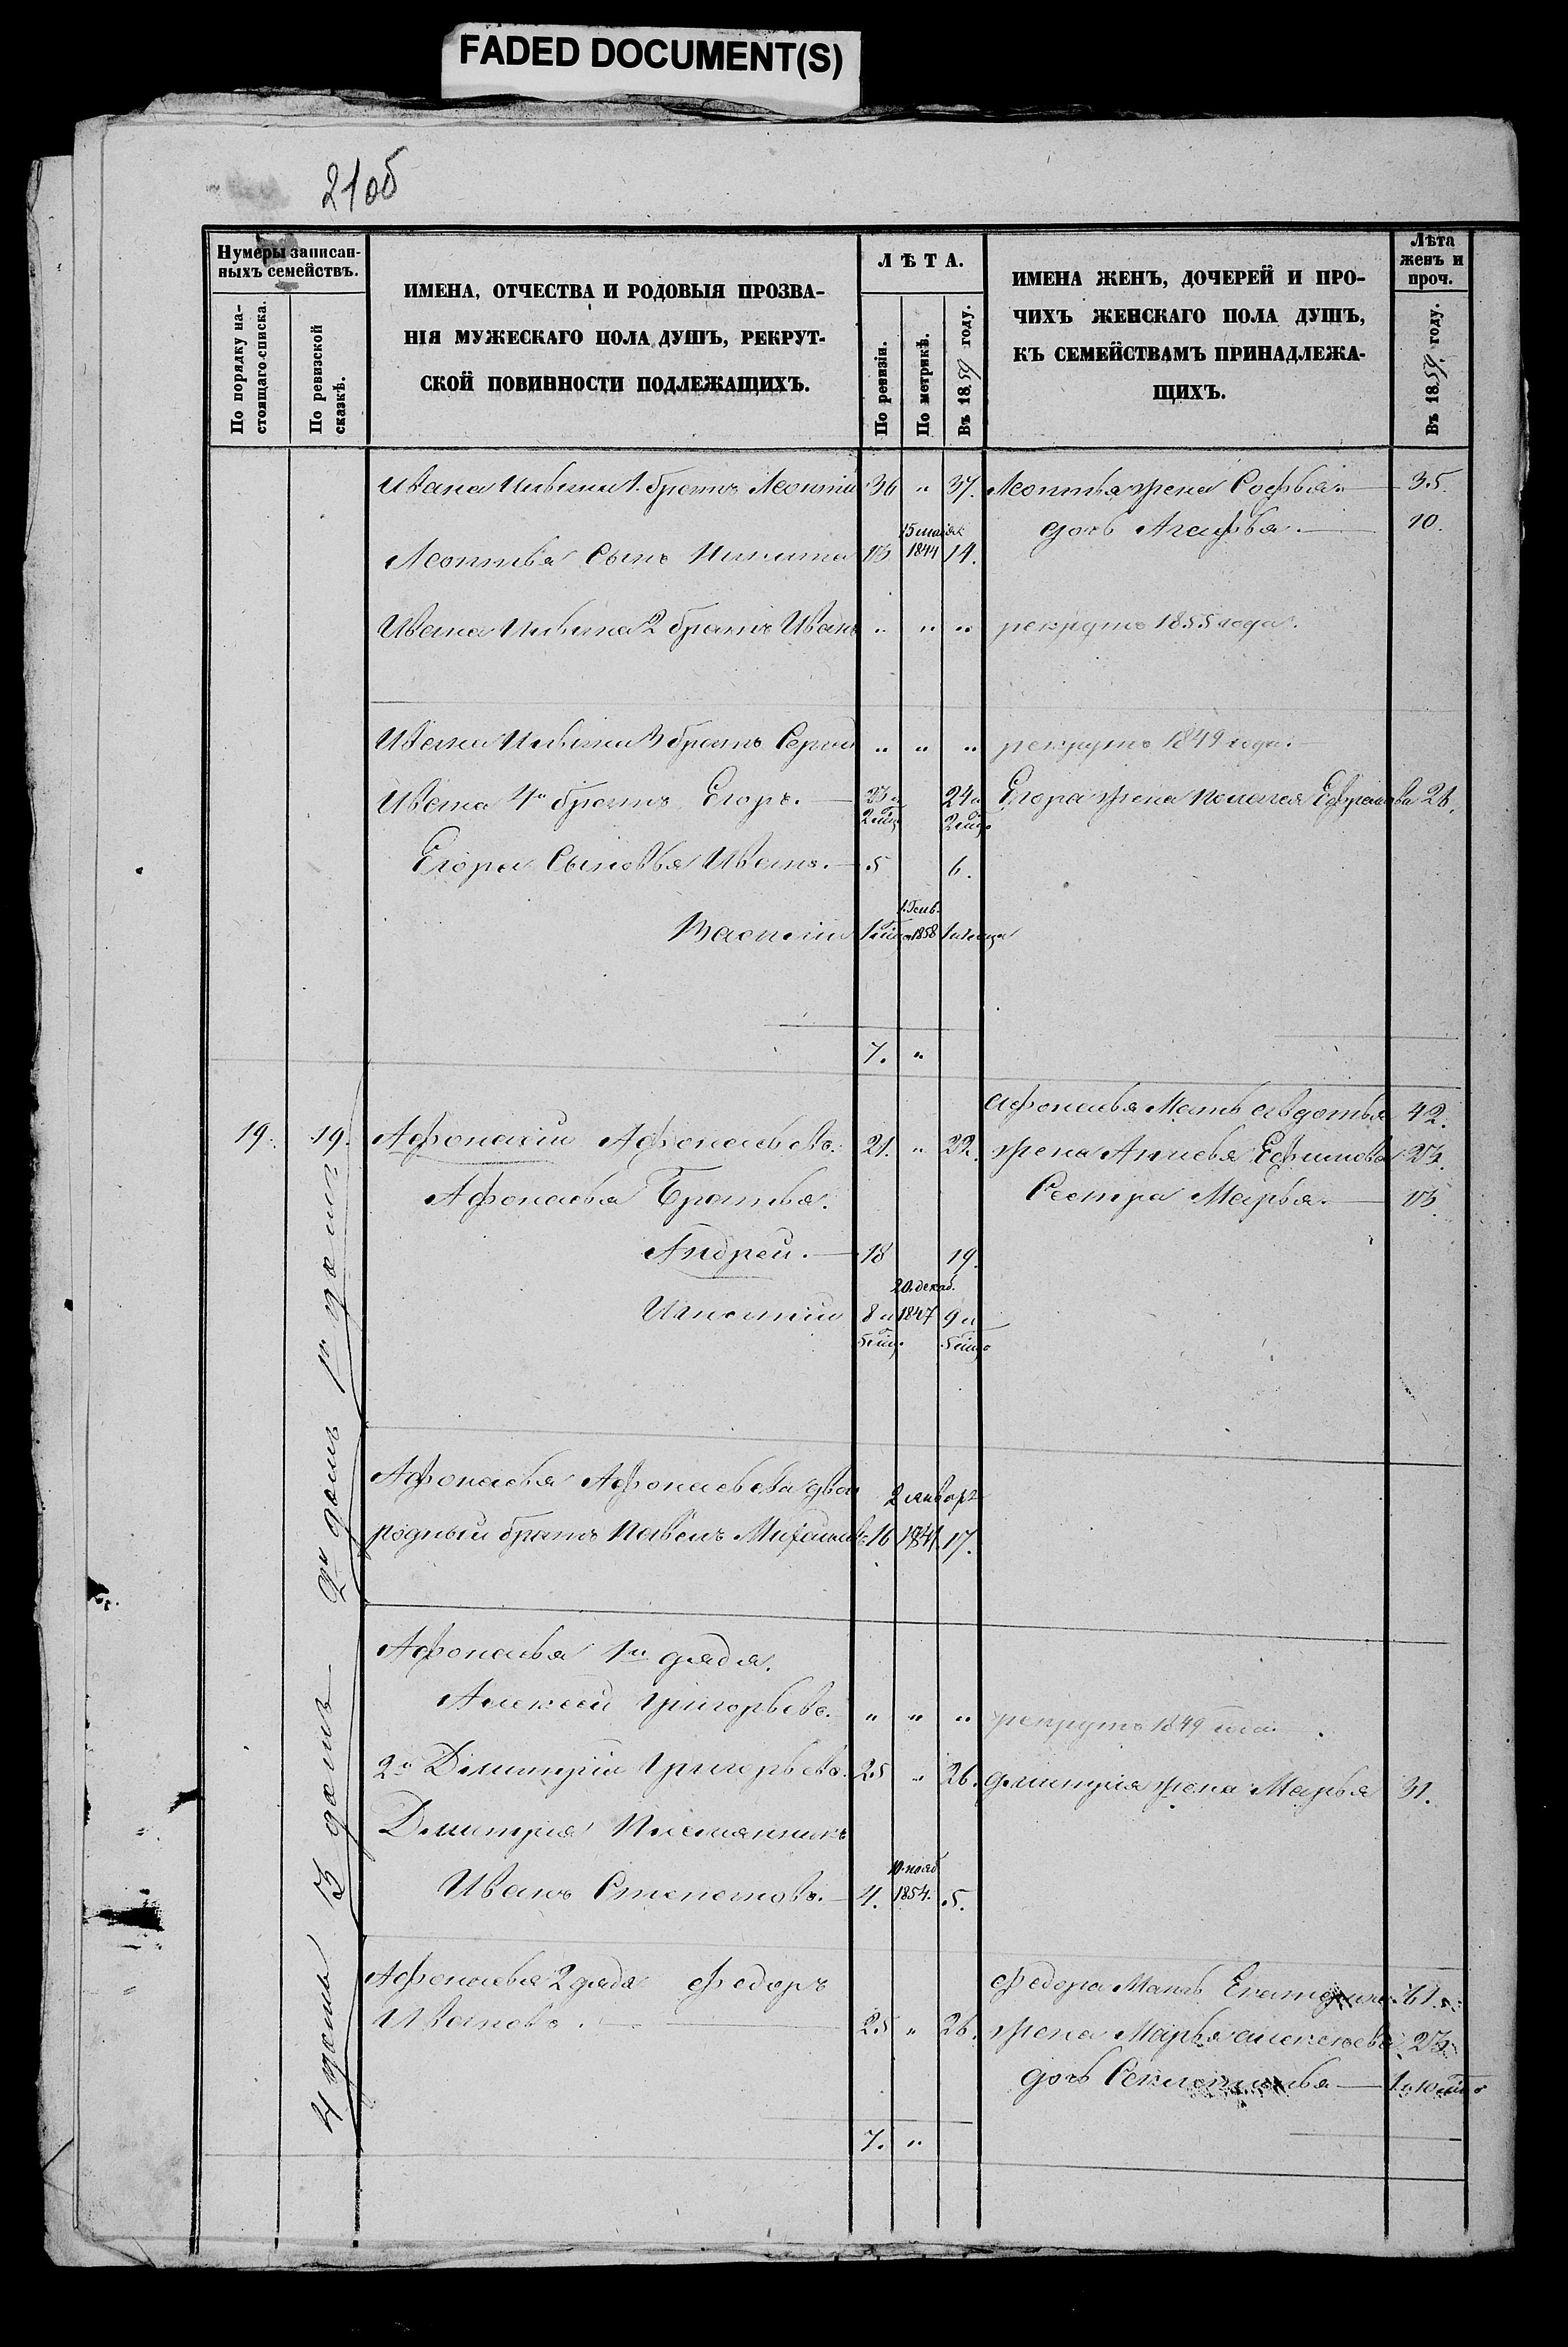 FADED DOCUMENT(S)
21об
Нумеры записан-
ныхъ семействъ.
По порядку на-
стоящаго списка.
По ревизской
сказкѣ.
ИМЕНА, ОТЧЕСТВА И РОДОВЫЯ ПРОЗВА-
НІЯ МУЖЕСКАГО ПОЛА ДУШЪ, РЕКРУТ-
СКОЙ ПОВИННОСТИ ПОДЛЕЖАЩИХЪ.
ЛѢТА.
По ревизіи.
По метрикѣ.
Въ 1859 году.
ИМЕНА ЖЕНЪ, ДОЧЕРЕЙ И ПРО-
ЧИХЪ ЖЕНСКАГО ПОЛА ДУШЪ,
КЪ СЕМЕЙСТВАМЪ ПРИНАДЛЕЖА-
ЩИХЪ.
Лѣта
женъ и
проч.
Въ 1859 году.
Ивана 1. братъ Леонтій 36 " 37. Леонтья жена Софья 35.
дочь Агафья. 10.
15 мая
Леонтья Сынъ Никита 13 1844 14.
Ивана 2 братъ Иванъ " " " рекрутъ 1855 года.
Ивана 3 братъ Сергій " " " рекрутъ 1849 года.
Ивана 4й братъ Егоръ. 23 и 24 и Егора жена Пелагея Ефремова 26.
2 мѣц 2 мѣц
Егора Сыновья Иванъ. 5 6.
1. Генв.
Василій 1 мѣц 1858 1 мѣсяца
7. "
Афонасья Мать Авдотья 42.
19. 19. Афонасій Афонасьевъ. 21. " 22. жена Анисья Ефимова 23.
1й домъ
Афонасья Братья. Сестра Марья. 13.
Андрей. 18 19.
20. декаб.
Игнатій 8 и 1847 9 и
5 мѣц. 5 мѣц
2й домъ
Афонасья Афонасьева двою 2 январ
родный братъ Павелъ Михайловъ 16 1841. 17.
3 домъ
Афонасья 1й дядя.
Алексей Григорьевъ. " " " рекрутъ 1849 года.
2й Дмитрій Григорьевъ. 25 " 26. Дмитрія жена Марья 31.
Дмитрія Племянникъ
10. нояб
Иванъ Степановъ. 4. 1854. 5.
4 домъ
Афонасья 2 дядя Федоръ Федора Мать Екатерина 61.
Ивановъ. 25 " 26. жена Марья Алексеева 23.
дочь
7. "